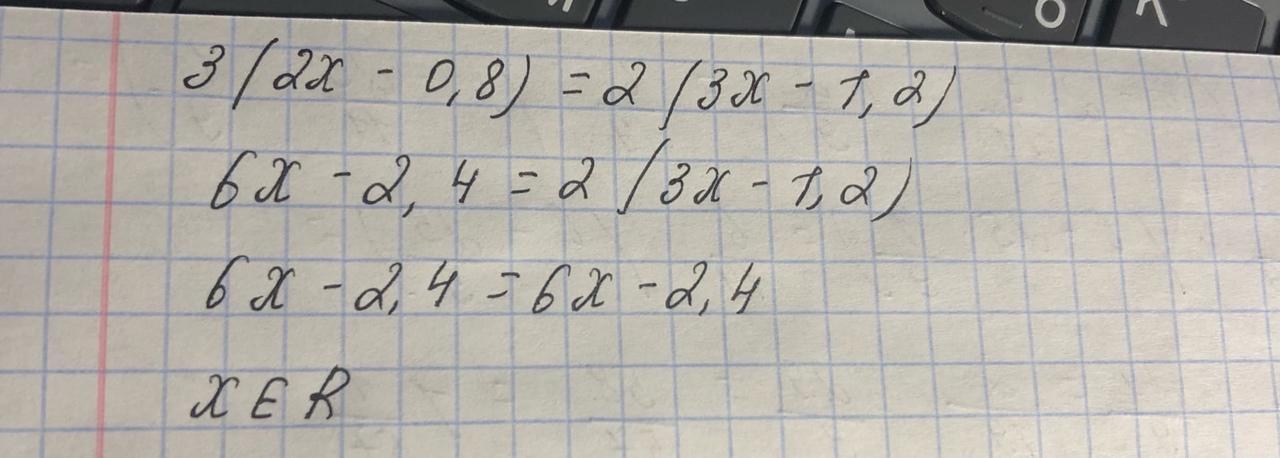 3(2x - 0,8) = 2(3x - 1,2)
6x - 2,4 = 2(3x - 1,2)
6x - 2,4 = 6x - 2,4
x ∈ R